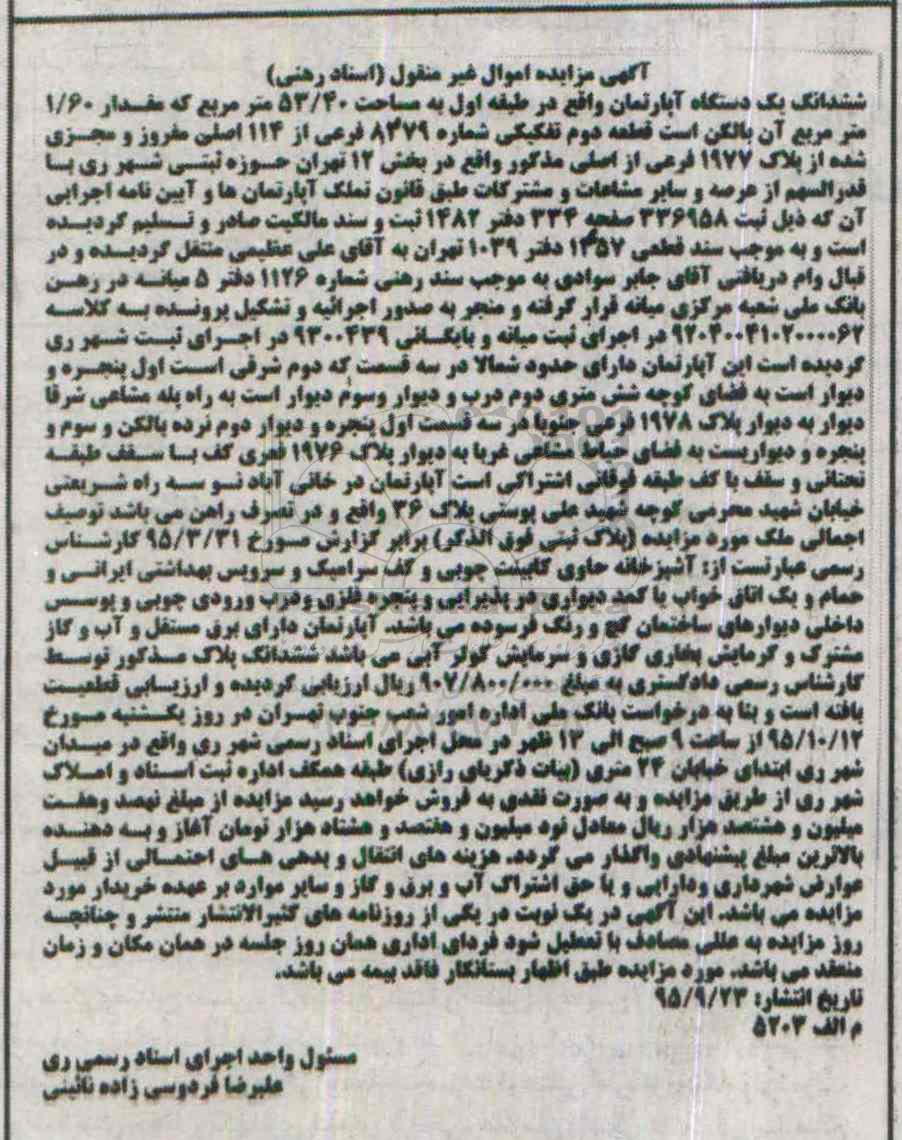 آگهی مزایده اموال غیر منقول (اسناد رهنی)
ششدانگ یک دستگاه آپارتمان واقع در طبقه اول به مساحت ۵۳/۴۰ متر مربع که مقدار ۱/۶۰
متر مربع آن بالکن است قطعه دوم تفکیکی شماره ۸۴۷۹ فرعی از ۱۱۴ اصلی مفروز و مجزی
شده از پلاک ۱۹۷۷ فرعی از اصلی مذکور واقع در بخش ۱۲ تهران حوزه ثبتی شهر ری با
قدرالسهم از عرصه و سایر مشاعات و مشترکات طبق قانون تملک آپارتمان ها و آیین نامه اجرایی
آن که ذیل ثبت ۳۳۶۹۵۸ صفحه ۳۳۴ دفتر ۱۴۸۲ ثبت و سند مالکیت صادر و تسلیم گردیده
است و به موجب سند قطعی ۱۳۵۷ دفتر ۱۰۳۹ تهران به آقای علی عظیمی منتقل گردیده و در
قبال وام دریافتی آقای جابر سوادی به موجب سند رهنی شماره ۱۱۲۶ دفتر ۵ میانه در رهن
بانک ملی شعبه مرکزی میانه قرار گرفته و منجر به صدور اجرائیه و تشکیل پرونده به کلاسه
۹۲۰۴۰۰۴۱۰۲۰۰۰۰۶۲ در اجرای ثبت میانه و بایگانی ۹۳۰۰۴۳۹ در اجرای ثبت شهر ری
گردیده است این آپارتمان دارای حدود شمالا در سه قسمت که دوم شرقی است اول پنجره و
دیوار است به فضای کوچه شش متری دوم درب و دیوار وسوم دیوار است به راه پله مشاعی شرقا
دیوار به دیوار پلاک ۱۹۷۸ فرعی جنوبا در سه قسمت اول پنجره و دیوار دوم نرده بالکن و سوم و
پنجره و دیواریست به فضای حیاط مشاعی غربا به دیوار پلاک ۱۹۷۶ فعری کف با سقف طبقه
تحتانی و سقف با کف طبقه فوقانی اشتراکی است آپارتمان در خانی آباد نو سه راه شریعتی
خیابان شهید محرمی کوچه شهید علی پوستی پلاک ۳۶ واقع و در تصرف راهن می باشد توصیف
اجمالی ملک مورد مزایده (پلاک ثبتی فوق الذکر) برابر گزارش مورخ ۹۵/۳/۳۱ کارشناس
رسمی عبارتست از: آشپزخانه حاوی کابینت چوبی و کف سرامیک و سرویس بهداشتی ایرانی و
حمام و یک اتاق خواب با کمد دیواری در پذیرایی و پنجره فلزی ودرب ورودی چوبی و پوسس
داخلی دیوارهای ساختمان گچ و رنگ فرسوده می باشد. آپارتمان دارای برق مستقل و آب و گاز
مشترک و گرمایش بخاری گازی و سرمایش کولر آبی می باشد ششدانگ پلاک مذکور توسط
کارشناس رسمی دادگستری به مبلغ ۹۰۷/۸۰۰/۰۰۰ ریال ارزیابی گردیده و ارزیسابی قطعیت
یافته است و بنا به درخواست بانک ملی اداره امور شعب جنوب تهران در روز یکشنبه مورخ
۹۵/۱۰/۱۲ از ساعت ۹ صبح الی ۱۳ ظهر در محل اجرای اسناد رسمی شهر ری واقع در میدان
شهر ری ابتدای خیابان ۲۴ متری (بیات ذکریای رازی) طبقه همکف اداره ثبت اسناد و املاک
شهر ری از طریق مزایده و به صورت نقدی به فروش خواهد رسید مزایده از مبلغ نهصد وهفت
میلیون و هشتصد هزار ریال معادل نود میلیون و هفتصد و هشتاد هزار تومان آغاز و به دهنده
بالاترین مبلغ پیشنهادی واگذار می گردد. هزینه های انتقال و بدهی های احتمالی از قبیل
عوارض شهرداری ودارایی و یا حق اشتراک آب و برق و گاز و سایر موارد بر عهده خریدار مورد
مزایده می باشد. این آگهی در یک نوبت در یکی از روزنامه های کثیرالانتشار منتشر و چنانچه
روز مزایده به عللی مصادف با تعطیل شود فردای اداری همان روز جلسه در همان مکان و زمان
منعقد می باشد. مورد مزایده طبق اظهار بستانکار فاقد بیمه می باشد.
تاریخ انتشار: ۹۵/۹/۲۳
م الف ۵۲۰۳
مسئول واحد اجرای اسناد رسمی ری
علیرضا فردوسی زاده نائینی